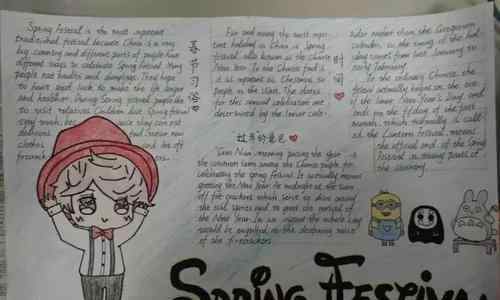 Spring Festival is the most important
traditional festival because China is a very
big country and different parts of people have
different ways to celebrate Spring Festival. Many
people eat noodles and dumplings. They hope
to have good luck to make the life longer
and healthier. During Spring Festival people like
to visit relatives. Children love Spring Festival
very much, because they can eat
delicious
clothes
春节习俗
Far and away the most impor-
tant holiday in China is Spring
Festival, also known as the Chinese
New Year. To the Chinese people
it is as important as Christmas to
people in the West. The dates
for this annual celebration are
determined by the lunar cale-
时间
ndar rather than the Gregorian
calendar, so the timing of the hol-
iday varies from late January to
early February.
To the ordinary Chinese, the
festival actually begins on the eve
of the lunar New Year's Day and
ends on the fifteenth of the first
month, which actually is call-
ed the Lantern Festival, means
the official end of the Spring
Festival in many parts of
the country.
过年的意思
"Guo Nian," meaning passing the year
the common term among the Chinese people for
celebrating the Spring Festival. It actually means
greeting the New Year. At midnight at the turn
off
the old year and to greet the arrival of
the New Year. In an instant the whole city
would be engulfed in the deafening noise
of the firecrackers.
SPRING FESTIVAL